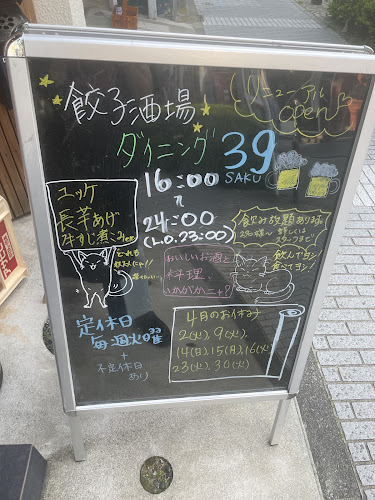 餃子酒場
リニューアル
open
ダイニング 39
SAKU
16:00
24:00
(L.O.23:00)
ユッケ
長芋あげ
牛すじ煮こみetc
飲み放題あります
飲んでヨシ!
食べてヨシ!
おいしいお酒と
料理、
いかがかニャ?
定休日
毎週火曜
+
不定休日
あり
4月のお休み
2(火), 9(火),
14(日), 15(月), 16(火)
23(火), 30(火)